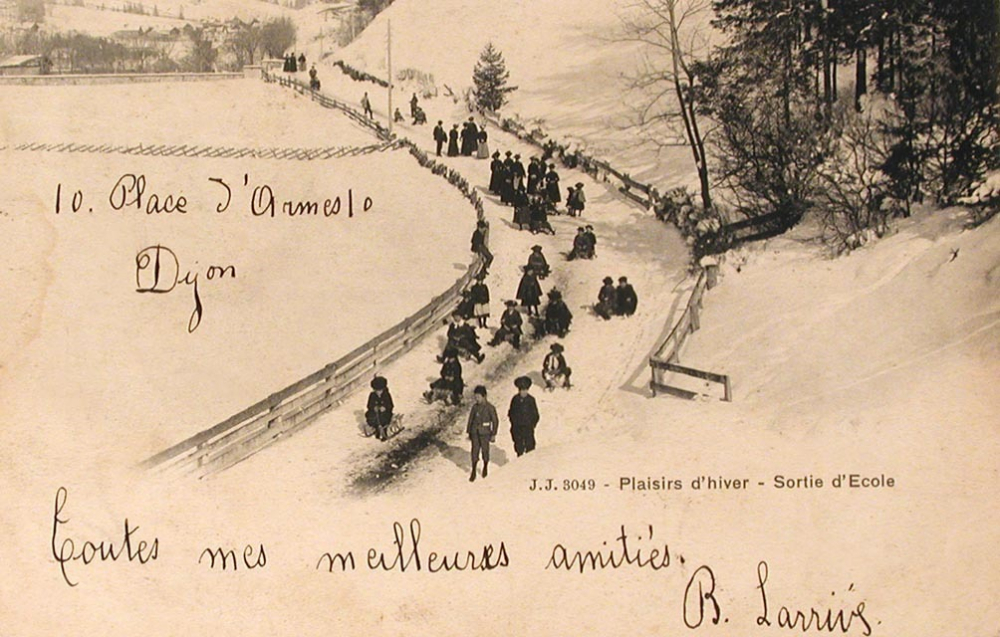 10. Place d'Armes 10
Dijon
J.J. 3049 - Plaisirs d'hiver - Sortie d'Ecole
Toutes mes meilleures amitiés.
B.